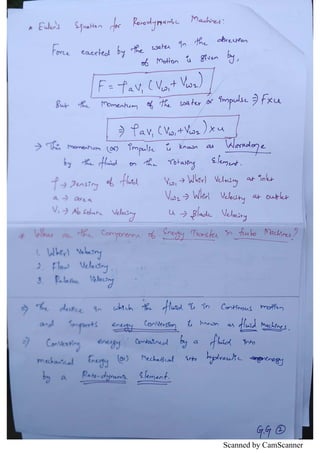 * Euler's Equation for Rotodynamic Machines:
Force exerted by the water in the direction
of Motion is given by,
F = ρav₁ (Vω₁ + Vω₂)
But the Momentum of the water or Impulse ⇒ F×u
⇒ ρav₁ (Vω₁ + Vω₂) × u
→ This momentum (or) impulse is known as Workdone
by the fluid on the rotating Element.
ρ → Density of fluid Vω₁ → Whirl Velocity at inlet
a → area Vω₂ → Whirl Velocity at outlet
V₁ → Absolute Velocity u → Blade Velocity
* What are the Components of Energy Transfer in turbo Machines?
1. Whirl Velocity
2. Flow Velocity
3. Relative Velocity
⇒ The device in which the fluid is in Continous motion
and imparts energy Conversion is known as fluid Machines.
⇒ Converting energy Contained by a fluid into
mechanical Energy (or) Mechanical into hydraulic energy
by a Roto-dynamic Element.
G.G ②
Scanned by CamScanner